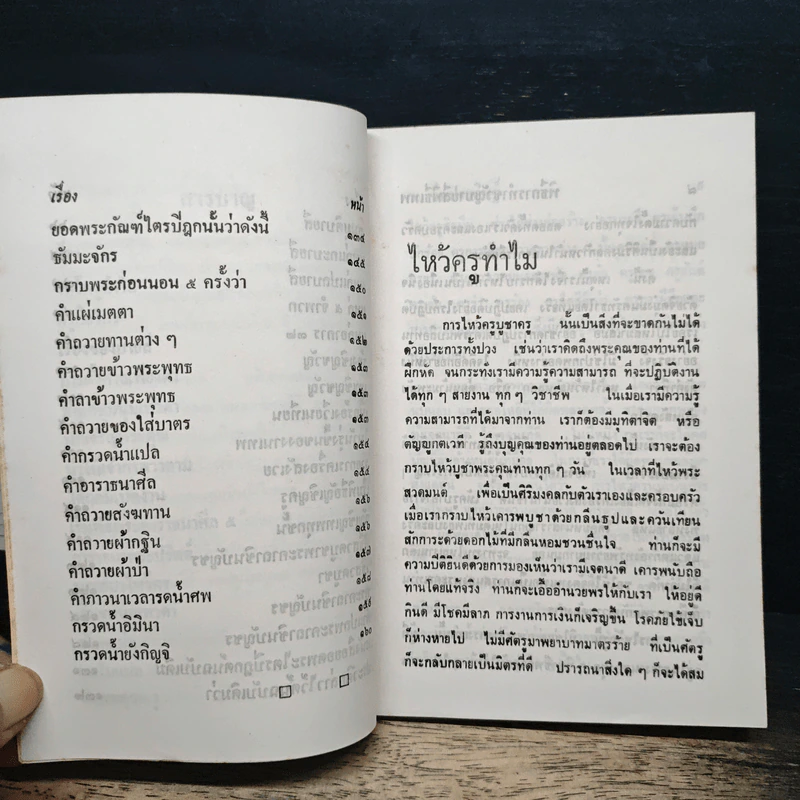 เรื่อง
หน้า
ยอดพระกัณฑ์ไตรปีฎกนั้นว่าดังนี้
๑๓๕
ธัมมะจักร
๑๔๕
กราบพระก่อนนอน ๕ ครั้งว่า
๑๕๐
คำแผ่เมตตา
๑๕๑
คำถวายทานต่าง ๆ
๑๕๒
คำถวายข้าวพระพุทธ
๑๕๓
คำลาข้าวพระพุทธ
๑๕๓
คำถวายของใส่บาตร
๑๕๓
คำกรวดน้ำแปล
๑๕๔
คำอาราธนาศีล
๑๕๔
คำถวายสังฆทาน
๑๕๖
คำถวายผ้ากฐิน
๑๕๖
คำถวายผ้าป่า
๑๕๗
คำภาวนาเวลารดน้ำศพ
๑๕๘
กรวดน้ำอิมินา
๑๕๙
กรวดน้ำยังกิญจิ
๑๖๐
ไหว้ครูทำไม
การไหว้ครูบูชาครู นั้นเป็นสิ่งที่จะขาดกันไม่ได้
ด้วยประการทั้งปวง เช่นว่าเราคิดถึงพระคุณของท่านที่ได้
ฝึกหัด จนกระทั่งเรามีความรู้ความสามารถ ที่จะปฏิบัติงาน
ได้ทุก ๆ สายงาน ทุก ๆ วิชาชีพ ในเมื่อเรามีความรู้
ความสามารถที่ได้มาจากท่าน เราก็ต้องมีมุทิตาจิต หรือ
ตัญญูกตเวที รู้ถึงบุญคุณของท่านอยู่ตลอดไป เราจะต้อง
กราบไหว้บูชาพระคุณท่านทุก ๆ วัน ในเวลาที่ไหว้พระ
สวดมนต์ เพื่อเป็นศิริมงคลกับตัวเราเองและครอบครัว
เมื่อเรากราบไหว้เคารพบูชาด้วยกลิ่นธูปและควันเทียน
สักการะด้วยดอกไม้ที่มีกลิ่นหอมชวนชื่นใจ ท่านก็จะมี
ความปีติยินดีด้วยการมองเห็นว่าเรามีเจตนาดี เคารพนับถือ
ท่านโดยแท้จริง ท่านก็จะเอื้ออำนวยพรให้กับเรา ให้อยู่ดี
กินดี มีโชคมีลาภ การงานการเงินก็เจริญขึ้น โรคภัยไข้เจ็บ
ก็ห่างหายไป ไม่มีศัตรูมาพยาบาทมาตรร้าย ที่เป็นศัตรู
ก็จะกลับกลายเป็นมิตรที่ดี ปรารถนาสิ่งใด ๆ ก็จะได้สม